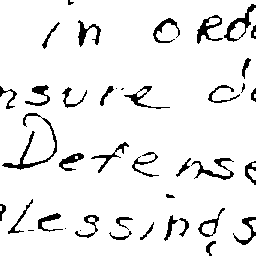 in ord
nsure do
Defense
lessings